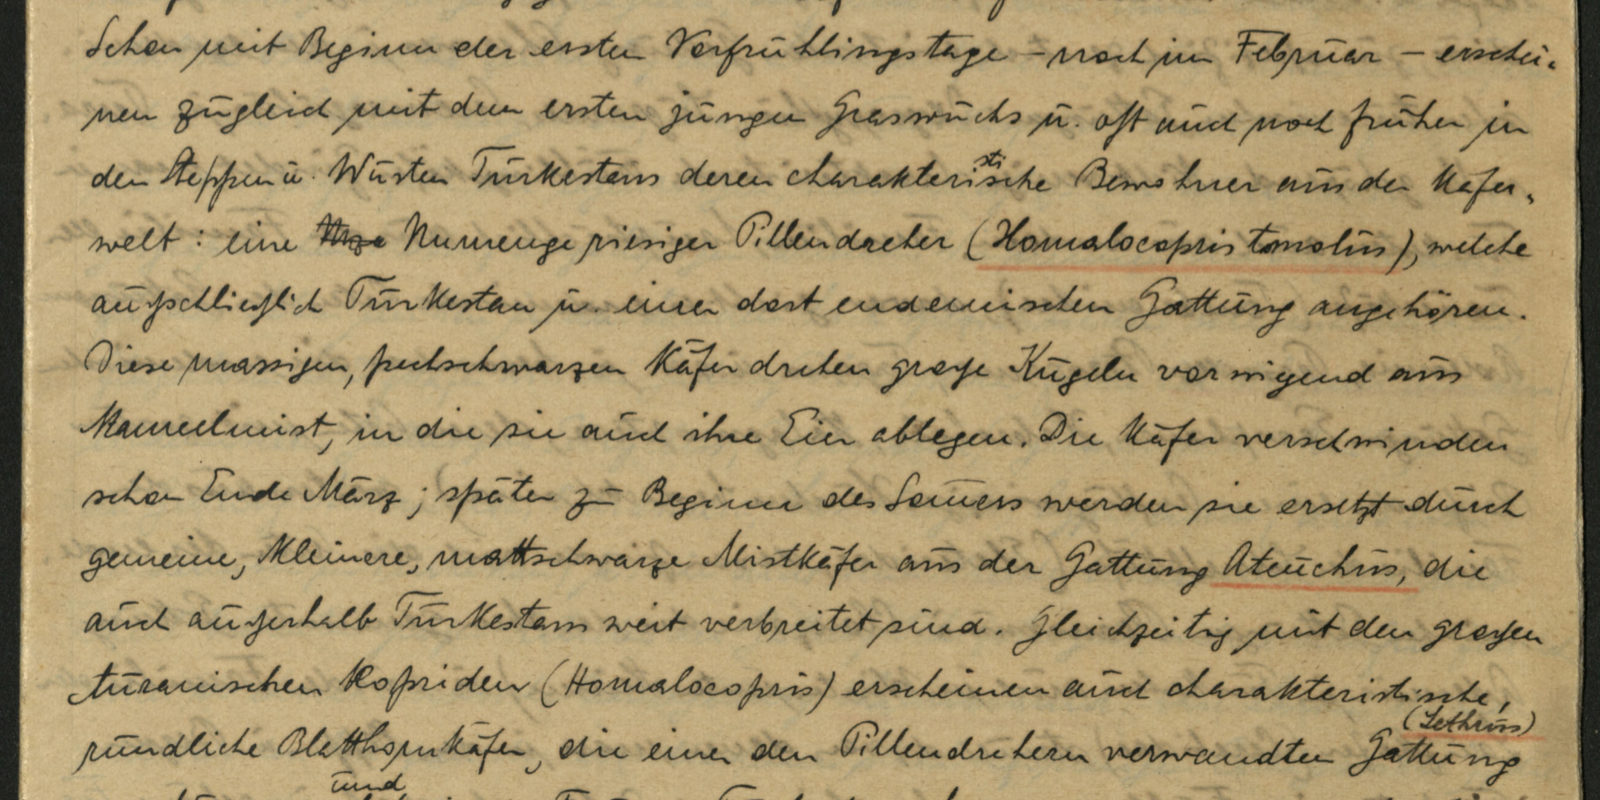 Schon mit Beginn der ersten Vorfrühlingstage – noch im Februar – erschei-
nen zugleich mit dem ersten jungen Graswuchs u. oft auch noch früher in
den Steppen u. Wüsten Turkestans deren charakteristische Bewohner aus der Käfer-
welt: eine Unmenge riesiger Pillendreher (Homalocopris tmolus), welche
außschließlich Turkestan u. einer dort endemischen Gattung angehören.
Diese massigen, pechschwarzen Käfer drehen große Kugeln vorwiegend aus
Kamelmist, in die sie auch ihre Eier ablegen. Die Käfer verschwinden
schon Ende März; später zu Beginn des Sommers werden sie ersetzt durch
gemeine, kleinere, mattschwarze Mistkäfer aus der Gattung Ateuchus, die
auch außerhalb Turkestans weit verbreitet sind. Gleichzeitig mit den großen
turanischen Kopriden (Homalocopris) erscheinen auch charakteristische,
rundliche Blatthornkäfer, die eine den Pillendrehern verwandten Gattung (Lethrus)
und